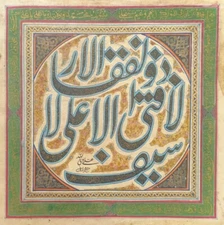 لا فتى الا على لا
سيف
الا ذو الفقار